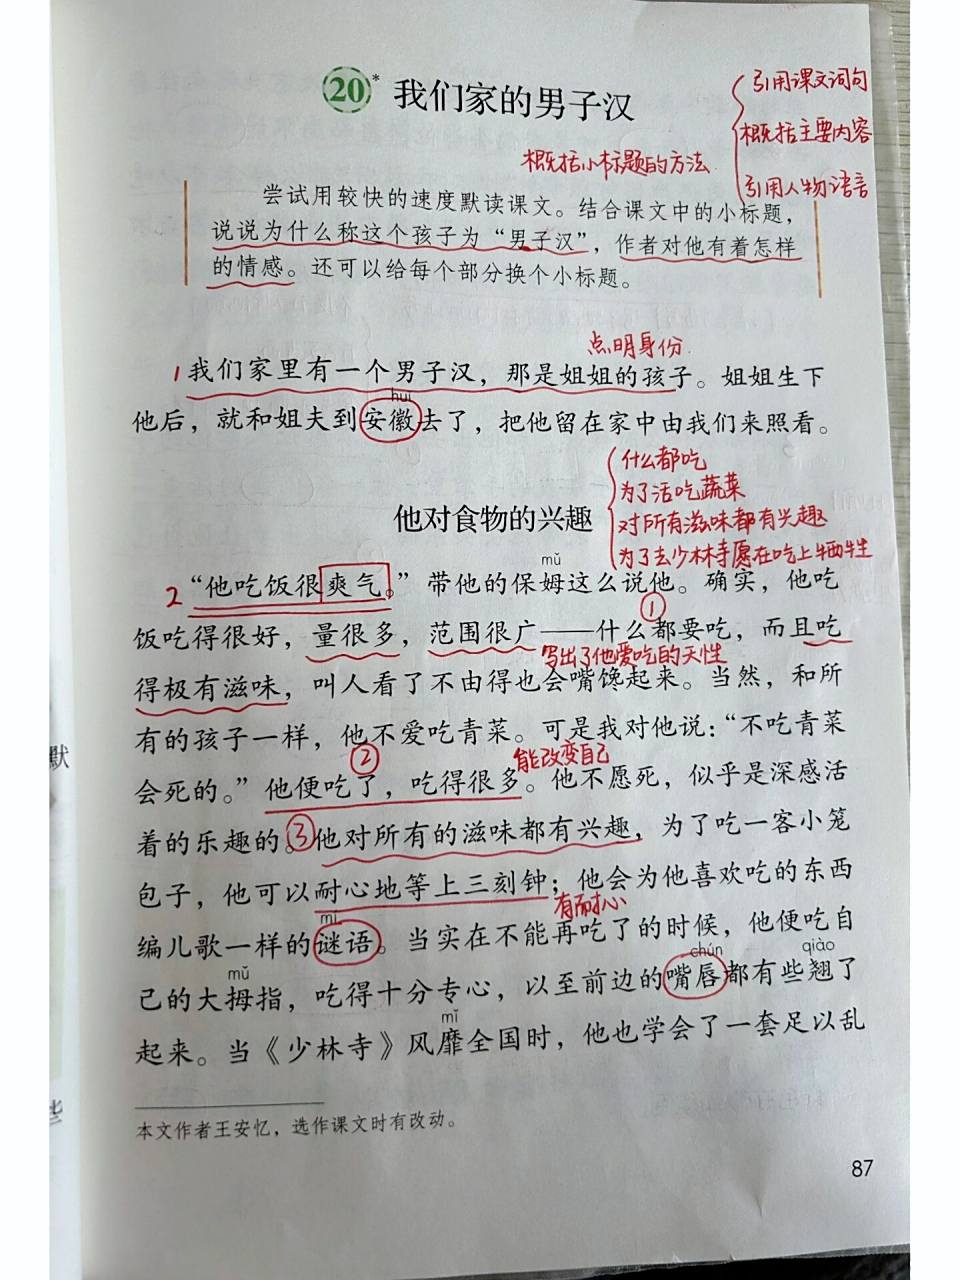 20* 我们家的男子汉
引用课文词句
概括主要内容
引用人物语言
概括小标题的方法
尝试用较快的速度默读课文。结合课文中的小标题，
说说为什么称这个孩子为“男子汉”，作者对他有着怎样
的情感。还可以给每个部分换个小标题。
点明身份
1 我们家里有一个男子汉，那是姐姐的孩子。姐姐生下
huī
他后，就和姐夫到安徽去了，把他留在家中由我们来照看。
什么都吃
为了活吃蔬菜
对所有滋味都有兴趣
为了去少林寺愿在吃上牺牲
他对食物的兴趣
mǔ
2 “他吃饭很爽气。”带他的保姆这么说他。确实，他吃
①
饭吃得很好，量很多，范围很广——什么都要吃，而且吃
写出了他爱吃的天性
得极有滋味，叫人看了不由得也会嘴馋起来。当然，和所
有的孩子一样，他不爱吃青菜。可是我对他说：“不吃青菜
② 能改变自己
会死的。”他便吃了，吃得很多。他不愿死，似乎是深感活
着的乐趣的。③他对所有的滋味都有兴趣，为了吃一客小笼
包子，他可以耐心地等上三刻钟；他会为他喜欢吃的东西
有耐心
mí
编儿歌一样的谜语。当实在不能再吃了的时候，他便吃自
mǔ chún qiào
己的大拇指，吃得十分专心，以至前边的嘴唇都有些翘了
mǐ
起来。当《少林寺》风靡全国时，他也学会了一套足以乱
本文作者王安忆，选作课文时有改动。
87
默
些